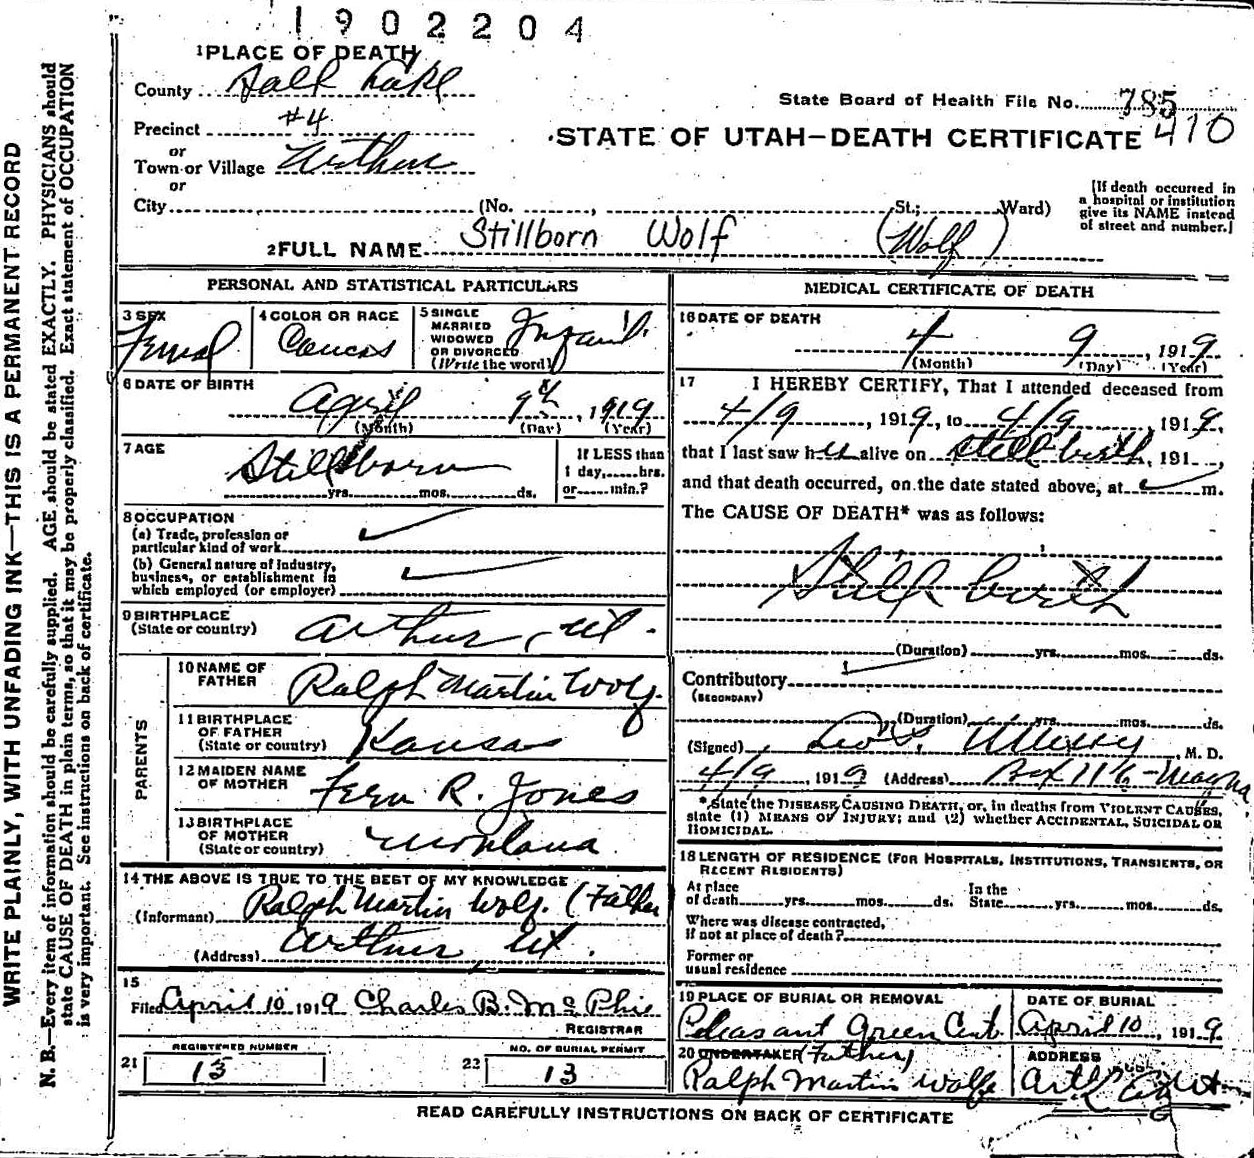 1902204
1 PLACE OF DEATH
County Salt Lake
State Board of Health File No. 785
Precinct #4
STATE OF UTAH—DEATH CERTIFICATE 410
or
Town or Village Arthur
or
City (No. , St.; Ward)
[If death occurred in
a hospital or institution
give its NAME instead
of street and number.]
2 FULL NAME Stillborn Wolf (Wolf)
PERSONAL AND STATISTICAL PARTICULARS
3 SEX
Femal
4 COLOR OR RACE
Caucas
5 SINGLE
MARRIED
WIDOWED
OR DIVORCED
(Write the word)
Infant
6 DATE OF BIRTH
April 9th, 1919
(Month) (Day) (Year)
7 AGE
Stillborn
yrs. mos. ds.
If LESS than
1 day, hrs.
or min.?
8 OCCUPATION
(a) Trade, profession or
particular kind of work
(b) General nature of industry,
business, or establishment in
which employed (or employer)
9 BIRTHPLACE
(State or country) Arthur, Ut.
PARENTS
10 NAME OF
FATHER Ralph Martin Wolf.
11 BIRTHPLACE
OF FATHER
(State or country) Kansas
12 MAIDEN NAME
OF MOTHER Fern R. Jones
13 BIRTHPLACE
OF MOTHER
(State or country) Montana
14 THE ABOVE IS TRUE TO THE BEST OF MY KNOWLEDGE
(Informant) Ralph Martin Wolf. (Father
(Address) Arthur, Ut.
15
Filed April 10 1919 Charles B. Mc Phie
REGISTRAR
21 REGISTERED NUMBER
13
22 NO. OF BURIAL PERMIT
13
MEDICAL CERTIFICATE OF DEATH
16 DATE OF DEATH
4 9, 1919
(Month) (Day) (Year)
17 I HEREBY CERTIFY, That I attended deceased from
4/9, 1919, to 4/9 1919,
that I last saw her alive on still birth, 191 ,
and that death occurred, on the date stated above, at m.
The CAUSE OF DEATH* was as follows:
Still birth
(Duration) yrs. mos. ds.
Contributory
(SECONDARY)
(Duration) yrs. mos. ds.
(Signed) , M. D.
4/9, 1919 (Address) Box 116 - Magna
* State the DISEASE CAUSING DEATH, or, in deaths from VIOLENT CAUSES,
state (1) MEANS OF INJURY; and (2) whether ACCIDENTAL, SUICIDAL OR
HOMICIDAL.
18 LENGTH OF RESIDENCE (FOR HOSPITALS, INSTITUTIONS, TRANSIENTS, OR
RECENT RESIDENTS)
At place
of death yrs. mos. ds.
In the
State yrs. mos. ds.
Where was disease contracted,
if not at place of death?
Former or
usual residence
19 PLACE OF BURIAL OR REMOVAL
Pleasant Green Cent
DATE OF BURIAL
April 10, 1919
20 UNDERTAKER (Father)
Ralph Martin Wolfe
ADDRESS
READ CAREFULLY INSTRUCTIONS ON BACK OF CERTIFICATE
WRITE PLAINLY, WITH UNFADING INK—THIS IS A PERMANENT RECORD
N. B.—Every item of information should be carefully supplied. AGE should be stated EXACTLY. PHYSICIANS should
state CAUSE OF DEATH in plain terms, so that it may be properly classified. Exact statement of OCCUPATION
is very important. See instructions on back of certificate.